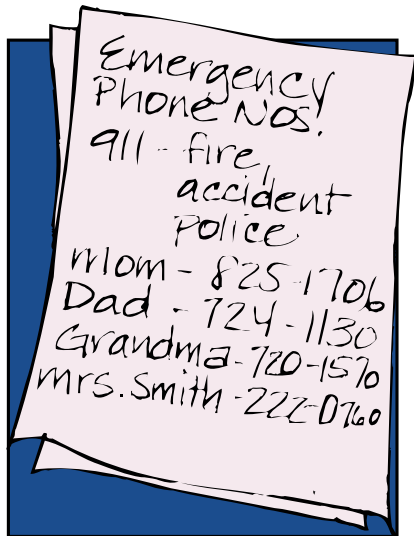 Emergency
Phone Nos!
911 - fire,
accident
police
mom - 825-1706
Dad - 724-1130
Grandma - 720-1570
mrs. Smith - 222-0760